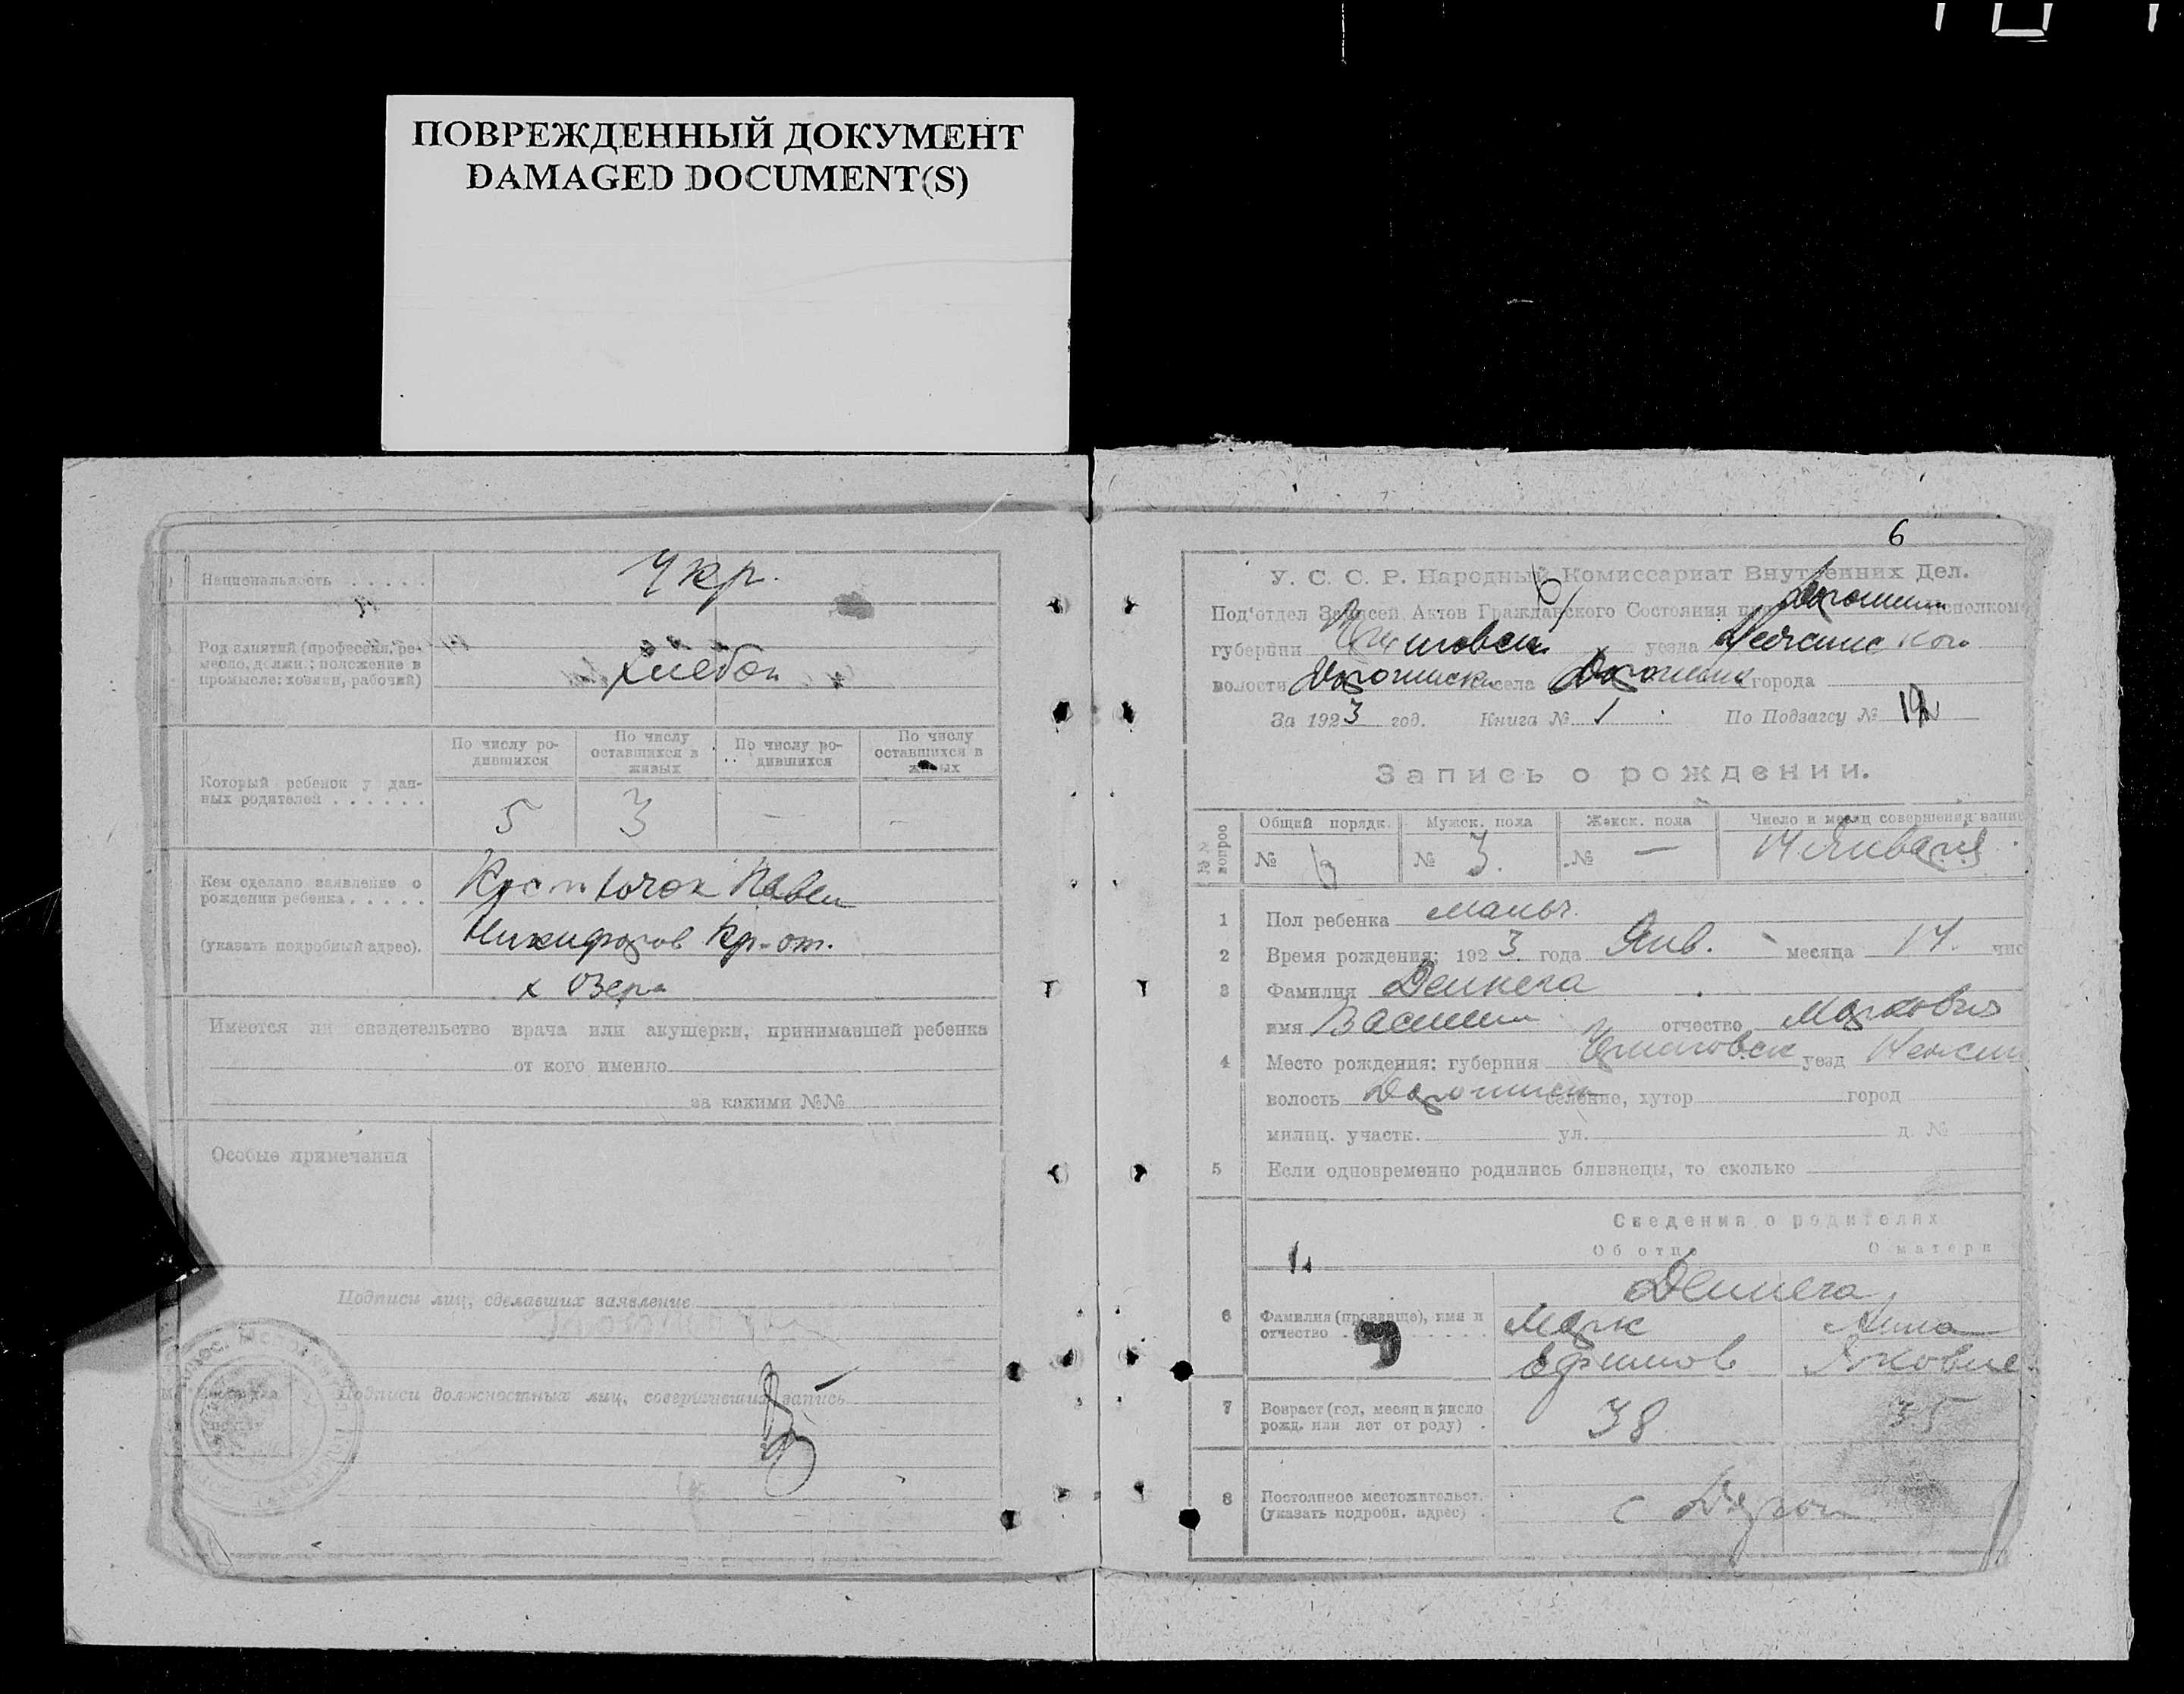 ПОВРЕЖДЕННЫЙ ДОКУМЕНТ
DAMAGED DOCUMENT(S)
Национальность . . . . . Укр.
Род занятий (профессия, ре-
месло, должн.; положение в
промысле: хозяин, рабочий)
хлебоп
Который ребенок у дан-
ных родителей . . . . . .
По числу ро-
дившихся
По числу
оставшихся в
живых
По числу ро-
дившихся
По числу
оставшихся в
живых
5 3 — —
Кем сделано заявление о
рождении ребенка . . . . .
(указать подробный адрес).
Павел
Никифоров Кр-от.
х Озера
Имеется ли свидетельство врача или акушерки, принимавшей ребенка
от кого именно
за какими №№
Особые примечания
Подписи лиц, сделавших заявление
Подписи должностных лиц, совершивших запись
6
У. С. С. Р. Народный Комиссариат Внутренних Дел.
Под'отдел Записей Актов Гражданского Состояния при Исполком
губернии уезда
волости села города
За 1923 год. Книга № 1 По Подзагсу №
Запись о рождении.
№№ вопрос
Общий порядк. Мужск. пола Женск. пола Число и месяц совершения
№ 6 № 3. № — 14 Января
1 Пол ребенка мальч.
2 Время рождения: 1923 года Янв. месяца 14. чис
3 Фамилия Дейнега
имя Василий отчество Маркович
4 Место рождения: губерния Черниговск уезд Нежин
волость селение, хутор город
милиц. участк. ул. д. №
5 Если одновременно родились близнецы, то сколько
Сведения о родителях
Об отце О матери
6 Фамилия (прозвище), имя и
отчество . . . . . . .
Дейнега
Марк Анна
Ефимов Яковле
7 Возраст (год, месяц и число
рожд. или лет от роду) .
38 35
8 Постоянное местожительст.
(указать подробн. адрес) .
с